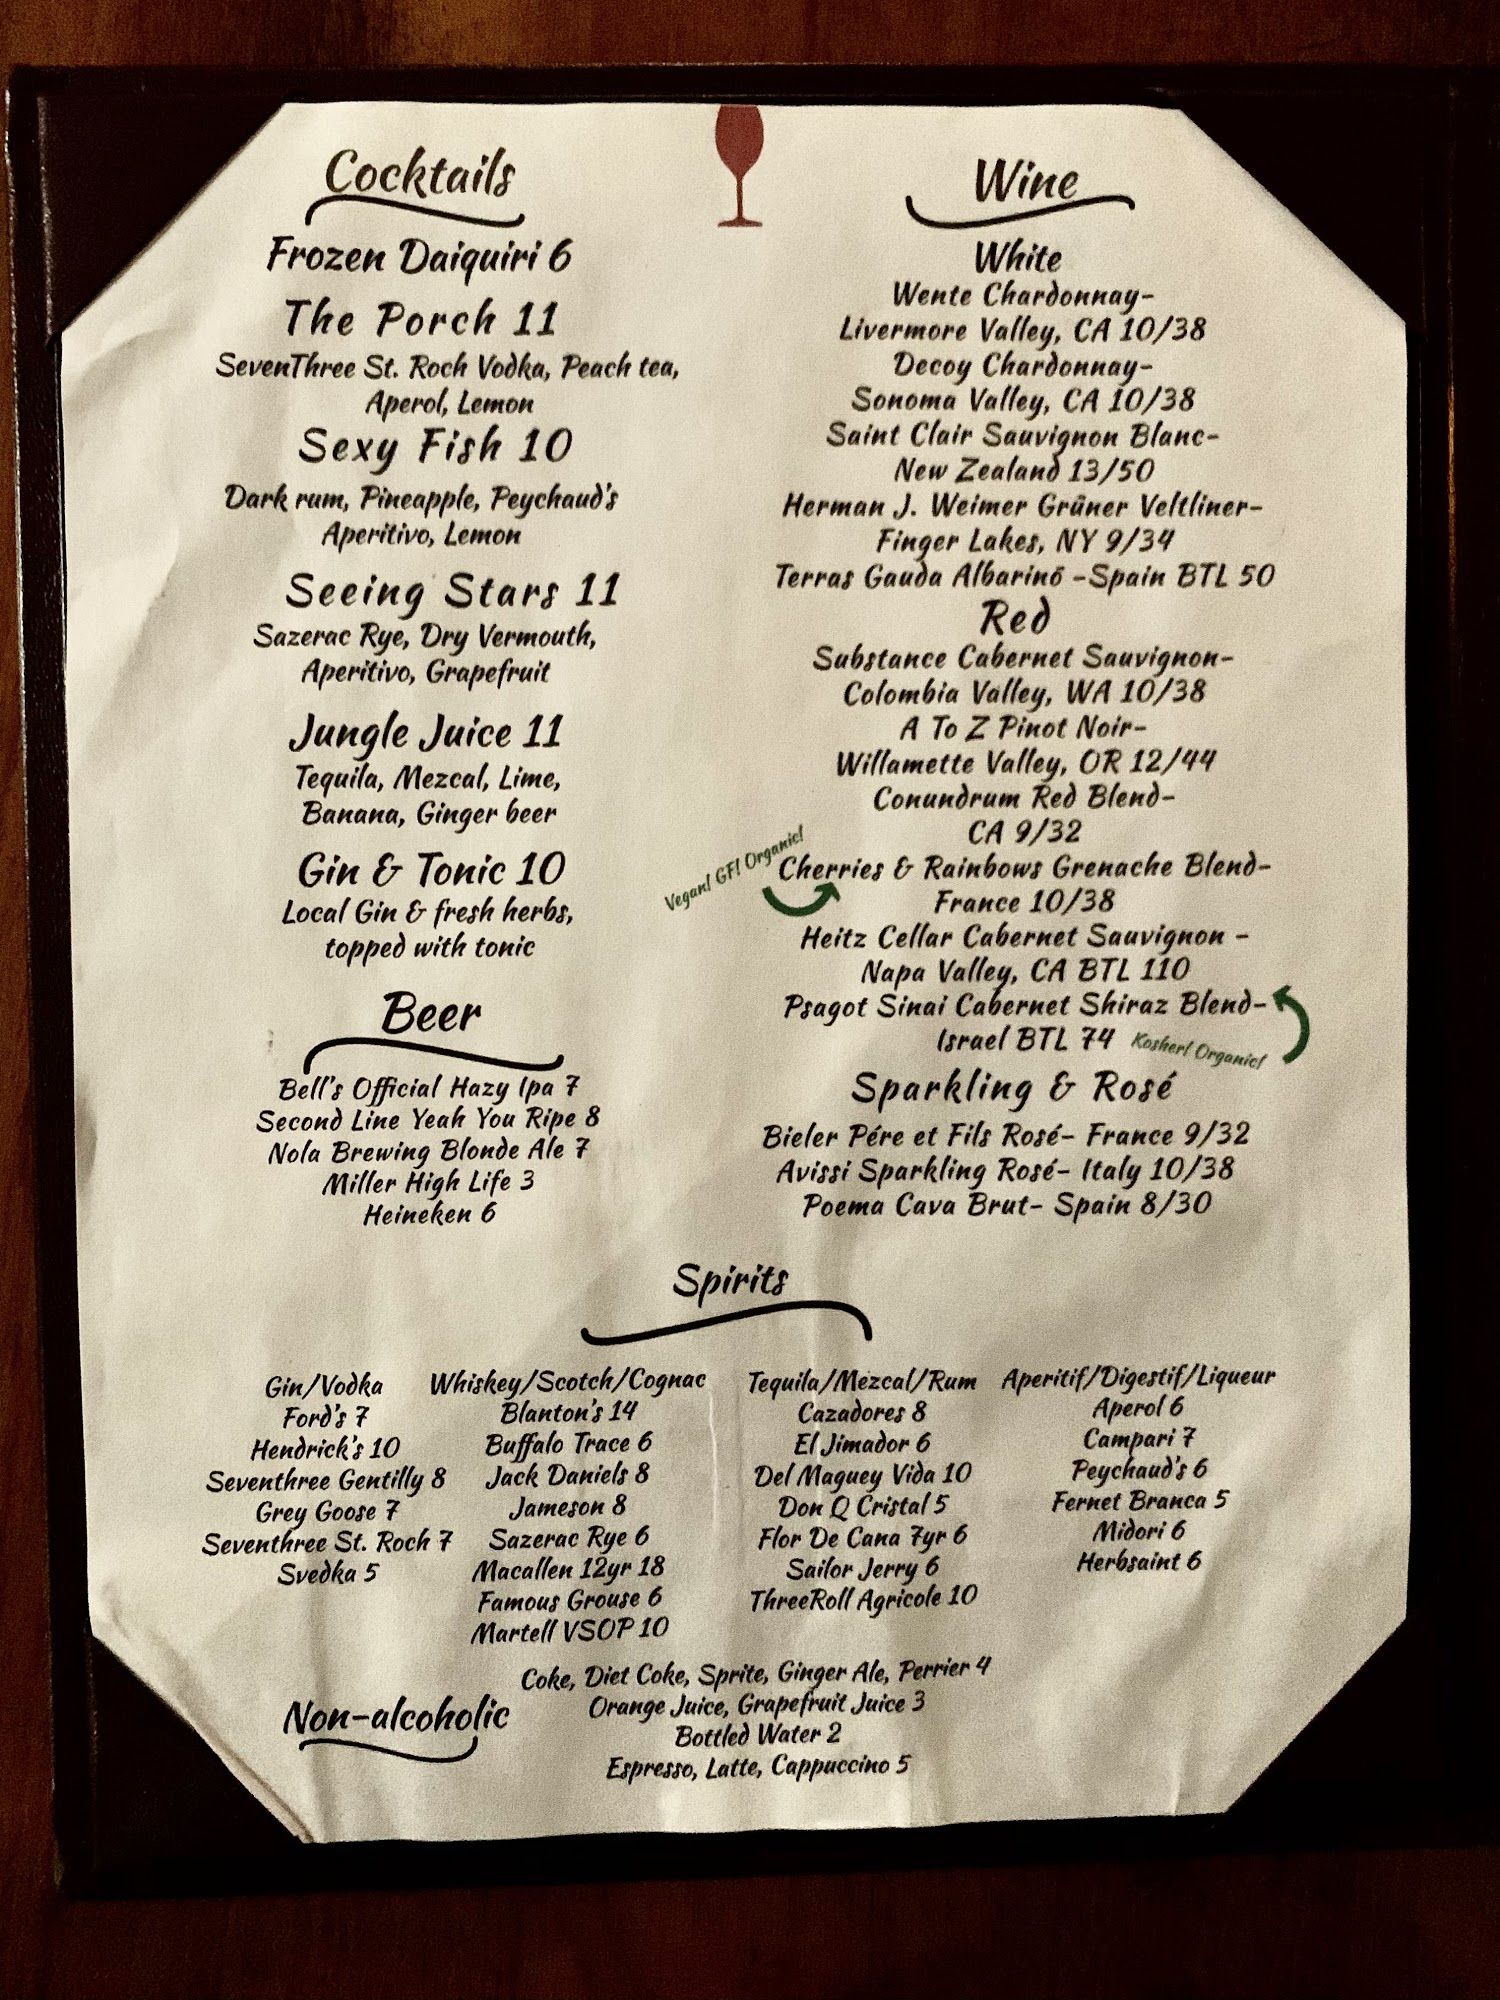 Cocktails
Frozen Daiquiri 6
The Porch 11
SevenThree St. Roch Vodka, Peach tea,
Aperol, Lemon
Sexy Fish 10
Dark rum, Pineapple, Peychaud's
Aperitivo, Lemon
Seeing Stars 11
Sazerac Rye, Dry Vermouth,
Aperitivo, Grapefruit
Jungle Juice 11
Tequila, Mezcal, Lime,
Banana, Ginger beer
Gin & Tonic 10
Local Gin & fresh herbs,
topped with tonic
Beer
Bell's Official Hazy Ipa 7
Second Line Yeah You Ripe 8
Nola Brewing Blonde Ale 7
Miller High Life 3
Heineken 6
Wine
White
Wente Chardonnay-
Livermore Valley, CA 10/38
Decoy Chardonnay-
Sonoma Valley, CA 10/38
Saint Clair Sauvignon Blanc-
New Zealand 13/50
Herman J. Weimer Grüner Veltliner-
Finger Lakes, NY 9/34
Terras Gauda Albarinō -Spain BTL 50
Red
Substance Cabernet Sauvignon-
Colombia Valley, WA 10/38
A To Z Pinot Noir-
Willamette Valley, OR 12/44
Conundrum Red Blend-
CA 9/32
Vegan! GF! Organic!
Cherries & Rainbows Grenache Blend-
France 10/38
Heitz Cellar Cabernet Sauvignon -
Napa Valley, CA BTL 110
Psagot Sinai Cabernet Shiraz Blend-
Israel BTL 74
Kosher! Organic!
Sparkling & Rosé
Bieler Pére et Fils Rosé- France 9/32
Avissi Sparkling Rosé- Italy 10/38
Poema Cava Brut- Spain 8/30
Spirits
Gin/Vodka
Ford's 7
Hendrick's 10
Seventhree Gentilly 8
Grey Goose 7
Seventhree St. Roch 7
Svedka 5
Whiskey/Scotch/Cognac
Blanton's 14
Buffalo Trace 6
Jack Daniels 8
Jameson 8
Sazerac Rye 6
Macallen 12yr 18
Famous Grouse 6
Martell VSOP 10
Tequila/Mezcal/Rum
Cazadores 8
El Jimador 6
Del Maguey Vida 10
Don Q Cristal 5
Flor De Cana 7yr 6
Sailor Jerry 6
ThreeRoll Agricole 10
Aperitif/Digestif/Liqueur
Aperol 6
Campari 7
Peychaud's 6
Fernet Branca 5
Midori 6
Herbsaint 6
Non-alcoholic
Coke, Diet Coke, Sprite, Ginger Ale, Perrier 4
Orange Juice, Grapefruit Juice 3
Bottled Water 2
Espresso, Latte, Cappuccino 5